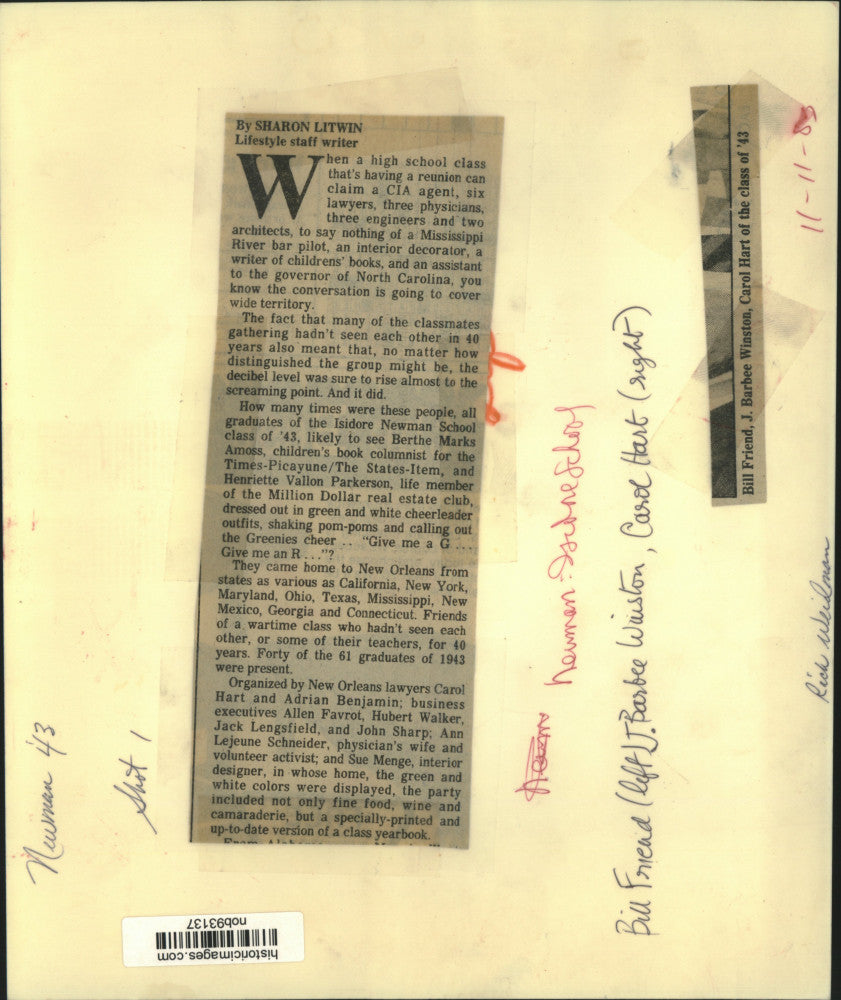 By SHARON LITWIN
Lifestyle staff writer
When a high school class
that's having a reunion can
claim a CIA agent, six
lawyers, three physicians,
three engineers and two
architects, to say nothing of a Mississippi
River bar pilot, an interior decorator, a
writer of childrens' books, and an assistant
to the governor of North Carolina, you
know the conversation is going to cover
wide territory.
The fact that many of the classmates
gathering hadn't seen each other in 40
years also meant that, no matter how
distinguished the group might be, the
decibel level was sure to rise almost to the
screaming point. And it did.
How many times were these people, all
graduates of the Isidore Newman School
class of '43, likely to see Berthe Marks
Amoss, children's book columnist for the
Times-Picayune/The States-Item, and
Henriette Vallon Parkerson, life member
of the Million Dollar real estate club,
dressed out in green and white cheerleader
outfits, shaking pom-poms and calling out
the Greenies cheer .. "Give me a G ....
Give me an R ..."?
They came home to New Orleans from
states as various as California, New York,
Maryland, Ohio, Texas, Mississippi, New
Mexico, Georgia and Connecticut. Friends
of a wartime class who hadn't seen each
other, or some of their teachers, for 40
years. Forty of the 61 graduates of 1943
were present.
Organized by New Orleans lawyers Carol
Hart and Adrian Benjamin; business
executives Allen Favrot, Hubert Walker,
Jack Lengsfield, and John Sharp; Ann
Lejeune Schneider, physician's wife and
volunteer activist; and Sue Menge, interior
designer, in whose home, the green and
white colors were displayed, the party
included not only fine food, wine and
camaraderie, but a specially-printed and
up-to-date version of a class yearbook.
Bill Friend, J. Barbee Winston, Carol Hart of the class of '43
11-11-83
Newman '43
Shot 1
Newman: Isidore School
Bill Friend (left) J. Barbee Winston, Carol Hart (right)
Rick Weidman
historicimages.com
nob93137